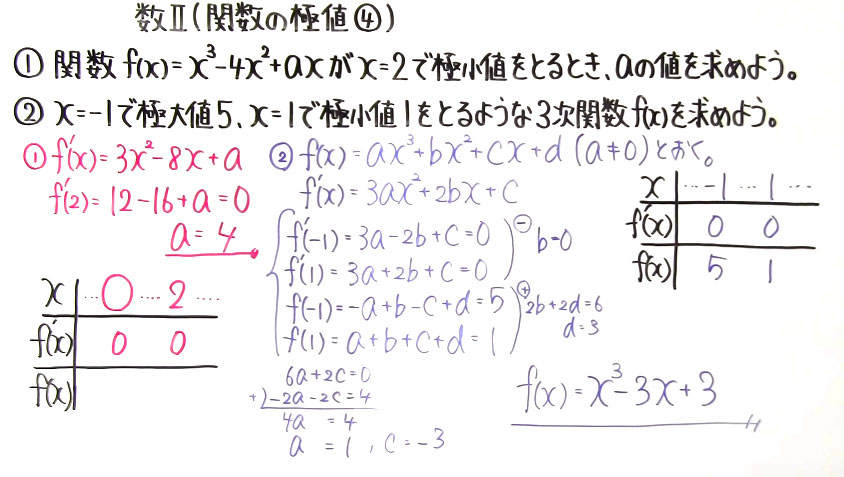 数Ⅱ(関数の極値④)
① 関数 f(x)=x³-4x²+ax が x=2で極小値をとるとき、aの値を求めよう。
② x=-1で極大値5、x=1で極小値1をとるような3次関数f(x)を求めよう。
① f'(x)=3x²-8x+a
f'(2)=12-16+a=0
a=4
x … 0 … 2 …
f'(x) 0 0
f(x)
② f(x)=ax³+bx²+cx+d (a≠0)とおく。
f'(x)=3ax²+2bx+c
f'(-1)=3a-2b+c=0
f'(1)=3a+2b+c=0
⊖ b=0
f(-1)=-a+b-c+d=5
f(1)=a+b+c+d=1
⊕ 2b+2d=6
d=3
6a+2c=0
+)-2a-2c=4
4a =4
a =1, c=-3
x … -1 … 1 …
f'(x) 0 0
f(x) 5 1
f(x)=x³-3x+3